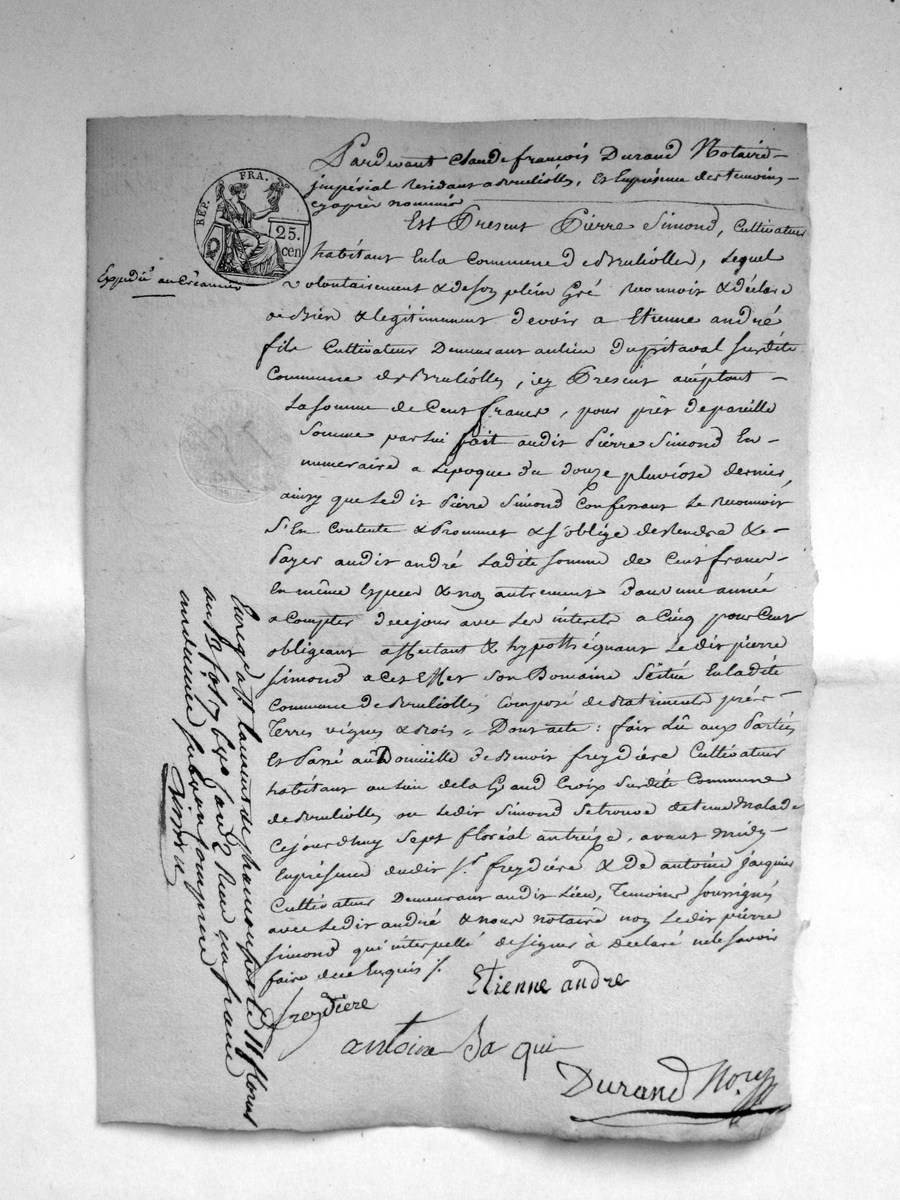 Pardevant Claude françois Durand Notaire
impérial Residant a Brulliolles, et En présence des temoins
cy après nommés
Est Present Pierre Simond, Cultivateur
habitant En la Commune de Brulliolles, Lequel
volontairement & de son plein Gré reconnoit & déclare
de Bien & legitimement devoir a Etienne andré
fils Cultivateur Demeurant au lieu Du pritaval Susdite
Commune de Brulliolles, icy Present acéptant
La somme de Cent francs, pour prèt de pareille
Somme par lui fait audit Pierre Simond En
numeraire a l'epoque du douze pluviose dernier,
ainsy que Ledit Pierre Simond Confessant Le reconnoit
S'En Contente & Promet & s'oblige de Rendre &
Payer audit andré Ladite somme de Cent francs
En même Especes & non autrement Dans une année
a Compter de ce jour avec Les interets a Cinq pour Cent
obligeant affectant & hypothéquant Ledit pierre
Simond a Cet Effet Son Domaine Sëitué En ladite
Commune de Brulliolles Composé de Batiments prés
Terres vignes & Bois = Dont acte : fait Lû aux Parties
Et Passé au Domicille de Benoit freydiére Cultivateur
habitant au lieu de la Grand Croix Susdite Commune
de Brulliolles ou Ledit Simond Se trouve detenu Malade
Cejourdhuy Sept floréal an treize, avant midy
En présence dudit Sr. freydiére & de antoine jacquier
Cultivateur Demeurant audit Lieu, Temoins Soussignés
avec Ledit andré & nous notaire non Ledit pierre
Simond qui interpellé de signer à Déclaré ne le Savoir
faire de ce Enquis /.
freydiere
Etienne andre
antoine Ja qui
Durand Nore
REP. FRA.
25.
cen
Expedié au Créancier
Enregist. a St Laurent de chamousset le 14 floreal
an 13 fol. 7 Reçu un franc